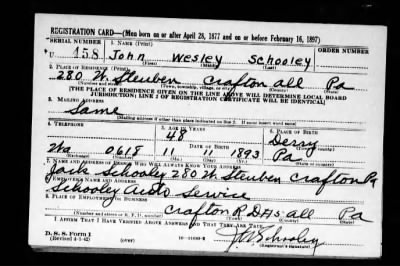 REGISTRATION CARD—(Men born on or after April 28, 1877 and on or before February 16, 1897)
SERIAL NUMBER 1. NAME (Print) ORDER NUMBER
U 158 John Wesley Schooley
2. PLACE OF RESIDENCE (Print)
280 W. Steuben Crafton all Pa
(Number and street) (Town, township, village, or city) (County) (State)
[THE PLACE OF RESIDENCE GIVEN ON THE LINE ABOVE WILL DETERMINE LOCAL BOARD
JURISDICTION; LINE 2 OF REGISTRATION CERTIFICATE WILL BE IDENTICAL]
3. MAILING ADDRESS
Same
[Mailing address if other than place indicated on line 2. If same insert word same]
4. TELEPHONE 5. AGE IN YEARS 6. PLACE OF BIRTH
48 Derry
DATE OF BIRTH
Wa 0618 11 1893 Pa
(Exchange) (Number) (Mo.) (Day) (Yr.) (State or country)
7. NAME AND ADDRESS OF PERSON WHO WILL ALWAYS KNOW YOUR ADDRESS
Jack Schooley 280 W. Steuben Crafton Pa
8. EMPLOYER'S NAME AND ADDRESS
Schooley Auto Service
9. PLACE OF EMPLOYMENT OR BUSINESS
Crafton R D #5 all Pa
(Number and street or R. F. D. number) (Town) (County) (State)
I AFFIRM THAT I HAVE VERIFIED ABOVE ANSWERS AND THAT THEY ARE TRUE.
D. S. S. Form 1
(Revised 4-1-42) (over) J W Schooley
(Registrant's signature)